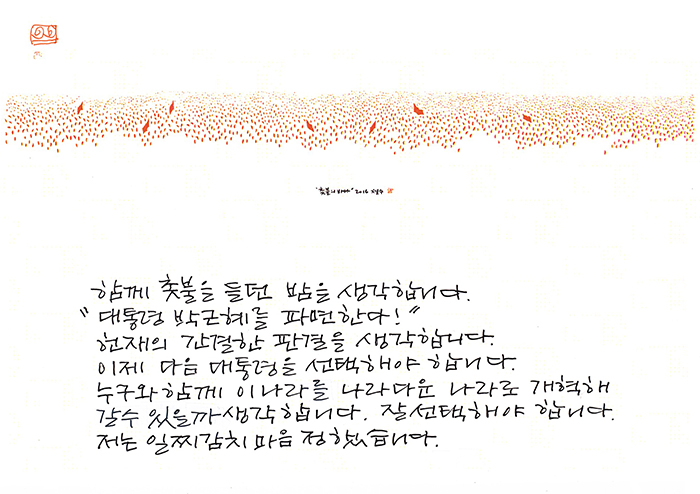 "촛불의 바다" 2016
함께 촛불을 들던 밤을 생각합니다.
"대통령 박근혜를 파면한다!"
헌재의 간결한 판결을 생각합니다.
이제 다음 대통령을 선택해야 합니다.
누구와 함께 이나라를 나라다운 나라로 개혁해
갈수 있을까 생각합니다. 잘 선택해야 합니다.
저는 일찌감치 마음 정했습니다.